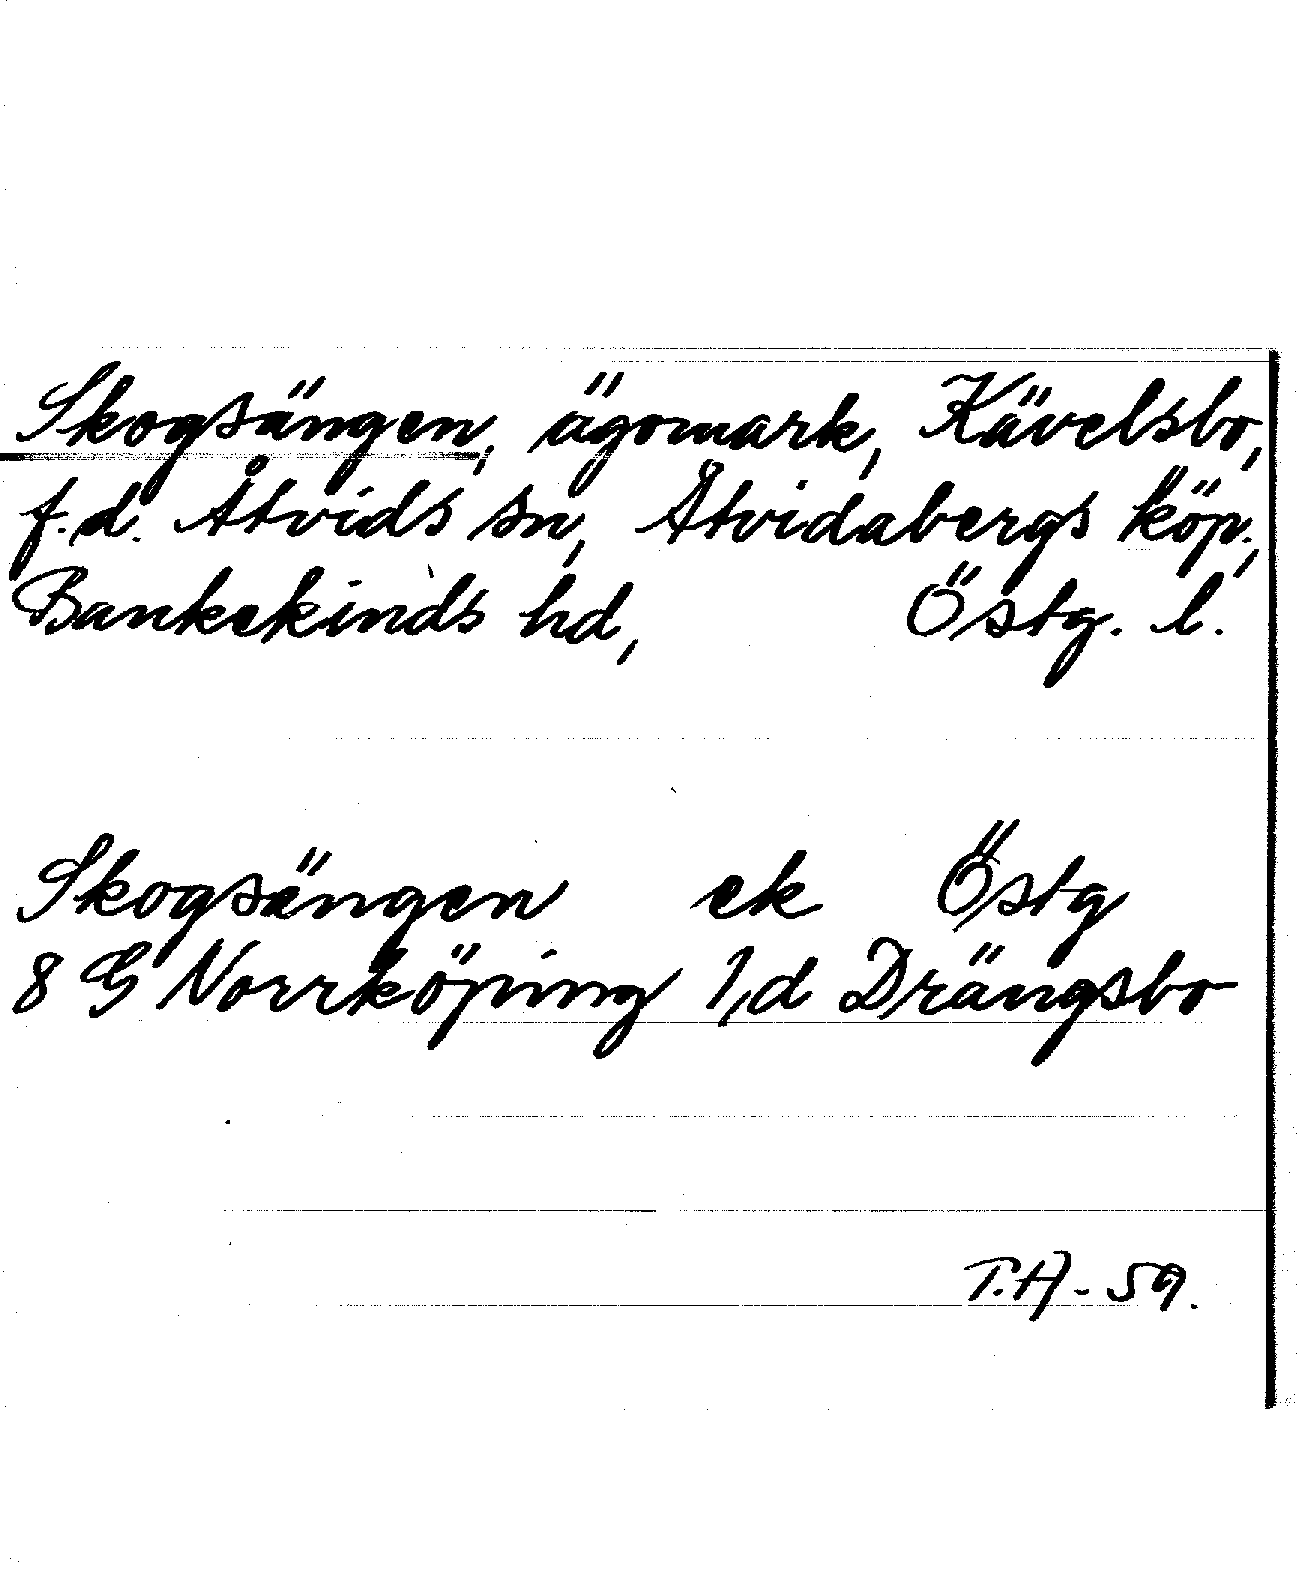 Skogsängen, ägomark, Kävelsbo,
f.d. Åtvids sn, Åtvidabergs köp.,
Bankekinds hd, Östg. l.
Skogsängen ek Östg
8 G Norrköping 1,d Drängsbo
T.H - 59.